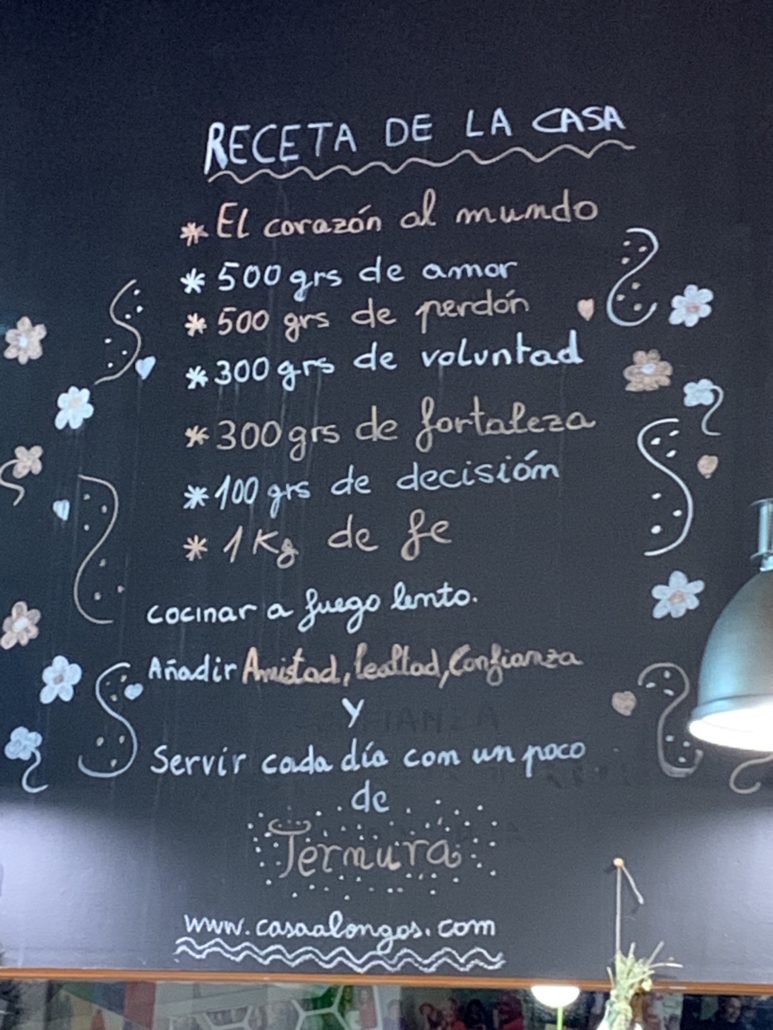 RECETA DE LA CASA
* El corazón al mundo
* 500 grs de amor
* 500 grs de perdón
* 300 grs de voluntad
* 300 grs de fortaleza
* 100 grs de decisión
* 1 Kg de fe
cocinar a fuego lento.
Añadir Amistad, lealtad, Confianza
y
Servir cada día con un poco
de
Ternura
www.casaalongos.com